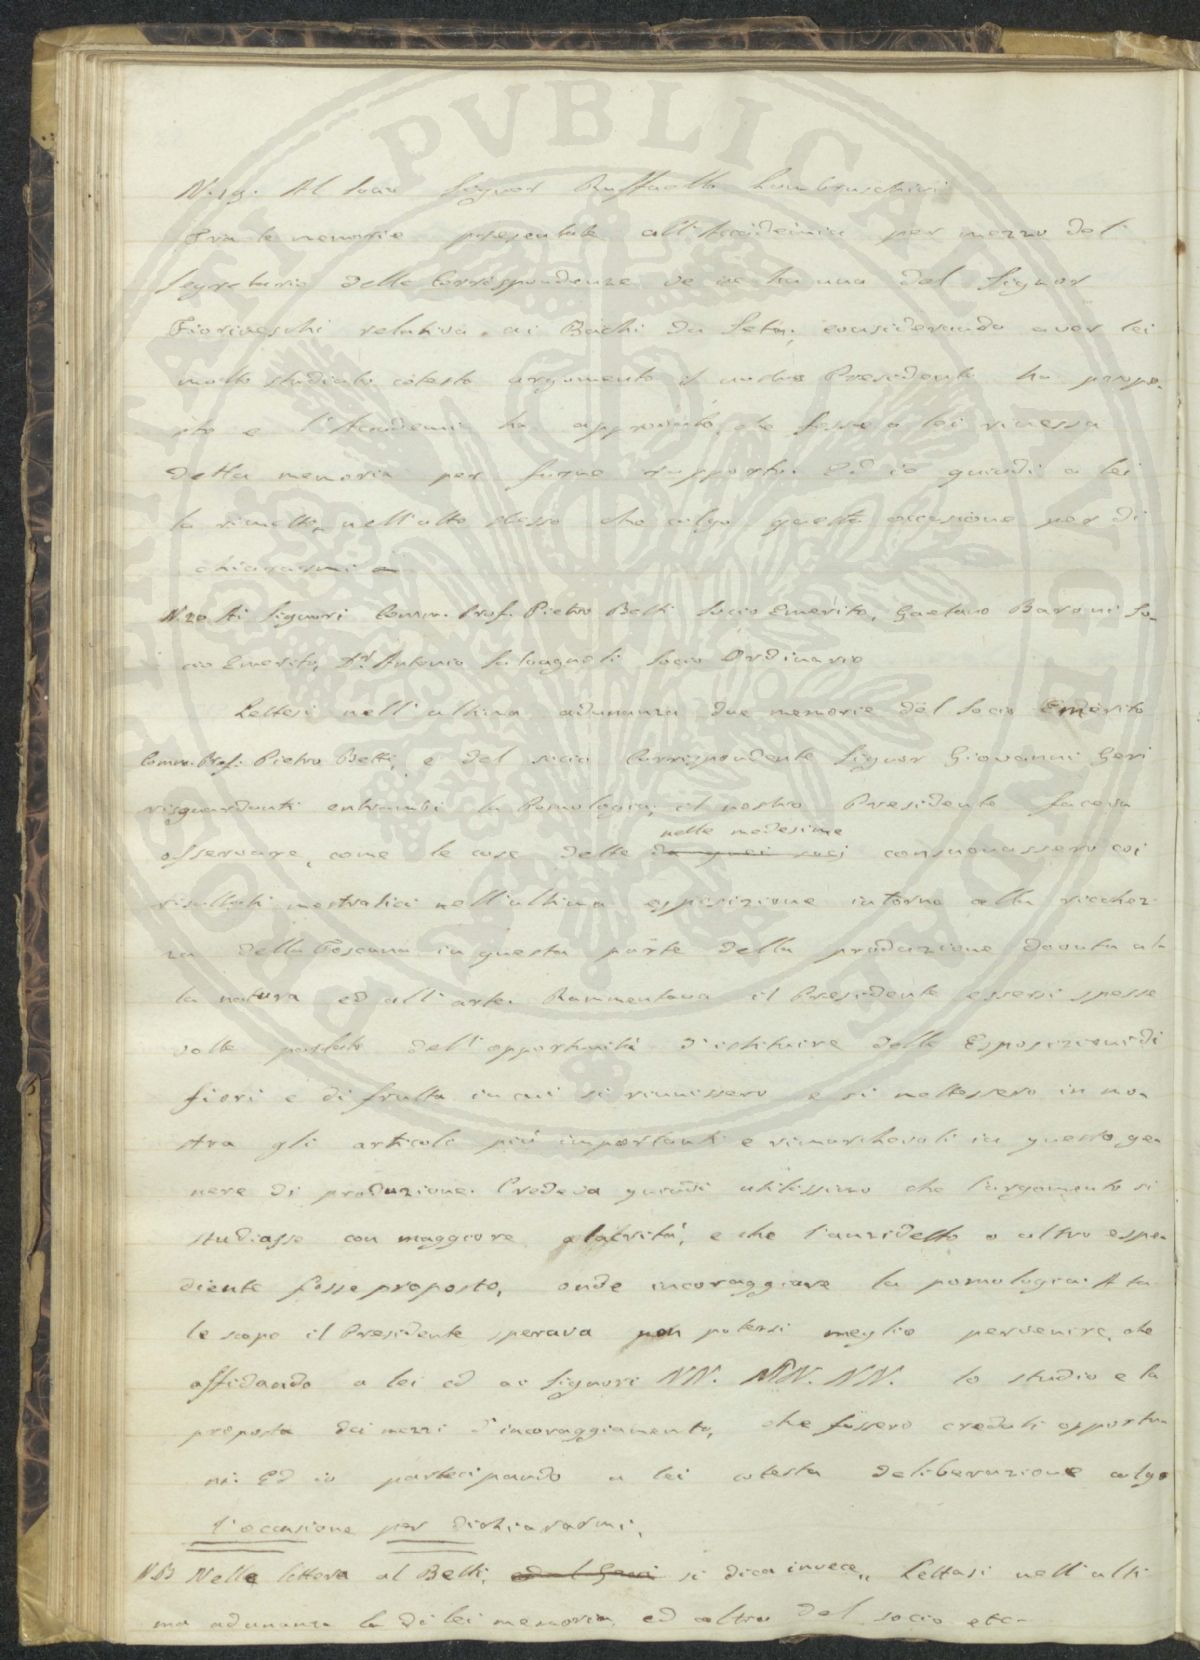 N. 19. Al Socio Signor Raffaello Lambruschini
Tra le memorie presentate all'Accademia per mezzo del
Segretario delle Corrispondenze ve ne ha una del Signor
Fioriveschi relativa ai Bachi da Seta; considerando aver lei
molto studiato cotesto argomento il nostro Presidente ha propo-
sto e l'Accademia ha approvato, che fosse a lei rimessa
detta memoria per farne rapporto. Ed io quindi a lei
la rimetto, nell'atto stesso che colgo questa occasione per di
chiararmi
N. 20 Ai Signori Comm. Prof. Pietro Betti Socio Emerito, Gaetano Baroni So-
cio Emerito, Dr. Antonio Salvagnoli Socio Ordinario
Lettesi nell'ultima adunanza due memorie del Socio Emerito
Comm. Prof. Pietro Betti, e del socio Corrispondente Signor Giovanni Geri
risguardanti entrambi la Pomologia; il nostro Presidente faceva
nelle medesime
osservare, come le cose dette da quei soci consuonassero coi
resultati mostratici nell'ultima esposizione intorno alla ricchez-
za della Toscana in questa parte della produzione dovuta al-
la natura ed all'arte. Rammentava il Presidente essersi spesse
volte parlato dell'opportunità d'istituire delle Esposizioni di
fiori e di frutta in cui si riunissero e si mettessero in mo-
stra gli articoli più importanti e rimarchevoli in questo ge-
nere di produzione. Credeva quindi utilissimo che l'argomento si
studiasse con maggiore alacrità, e che l'anzidetto o altro espe-
diente fosse proposto, onde incoraggiare la pomologia. A ta
le scopo il Presidente sperava non potersi meglio pervenire, che
affidando a lei ed ai Signori NN. NN. NN. lo studio e la
proposta dei mezzi d'incoraggiamento, che fossero creduti opportu-
ni. Ed io partecipando a lei cotesta deliberazione colgo
l'occasione per dichiararmi.
NB Nella lettera al Betti, ed al Geri si dica invece,, Lettasi nell'ulti
ma adunanza la di lei memoria ed altra del socio etc-
PVBLICAE